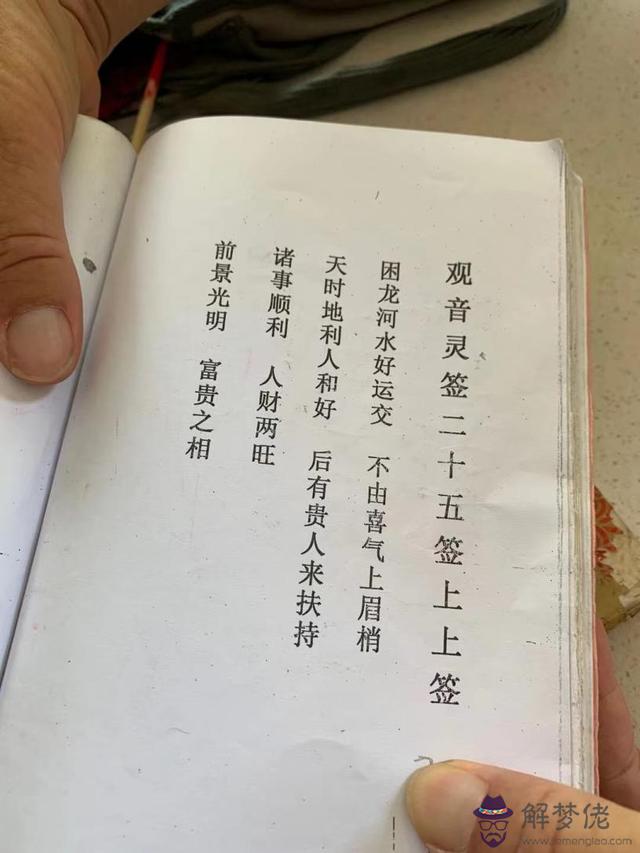 观音灵签二十五签上上签
困龙河水好运交 不由喜气上眉梢
天时地利人和好 后有贵人来扶持
诸事顺利 人财两旺
前景光明 富贵之相
解梦佬